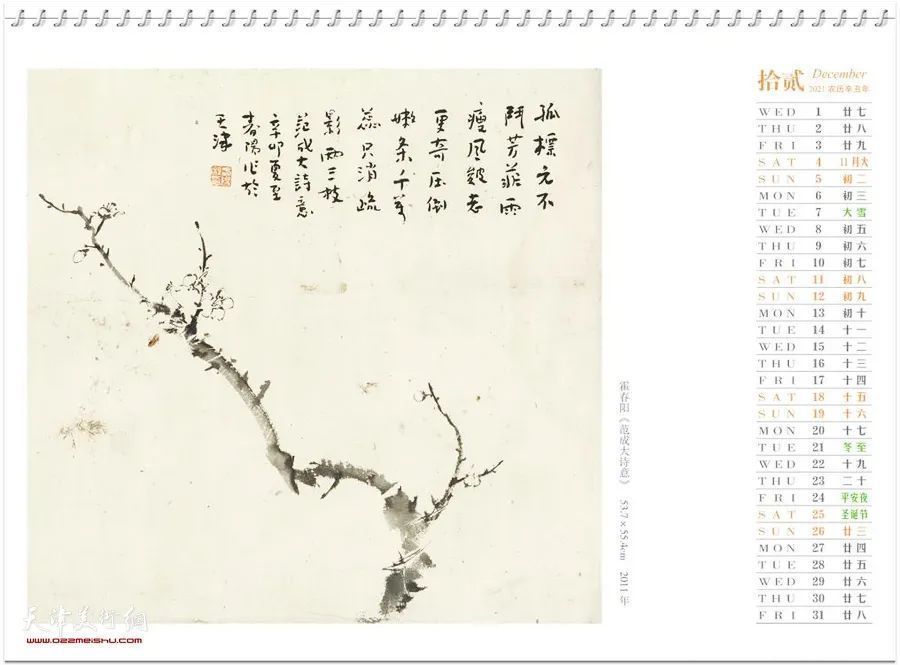 孤標元不
鬥芳菲雨
瘦風皴老
更奇压倒
嫩条千萬
蕊只消疏
影两三枝
范成大詩意
辛卯夏至
春陽作於
天津
霍春阳《范成大诗意》 53.7×55.4cm 2011年
拾贰 December
2021 农历辛丑年
WED 1 廿七
THU 2 廿八
FRI 3 廿九
SAT 4 11月大
SUN 5 初二
MON 6 初三
TUE 7 大雪
WED 8 初五
THU 9 初六
FRI 10 初七
SAT 11 初八
SUN 12 初九
MON 13 初十
TUE 14 十一
WED 15 十二
THU 16 十三
FRI 17 十四
SAT 18 十五
SUN 19 十六
MON 20 十七
TUE 21 冬至
WED 22 十九
THU 23 二十
FRI 24 平安夜
SAT 25 圣诞节
SUN 26 廿三
MON 27 廿四
TUE 28 廿五
WED 29 廿六
THU 30 廿七
FRI 31 廿八
天津美术網
www.022meishu.com